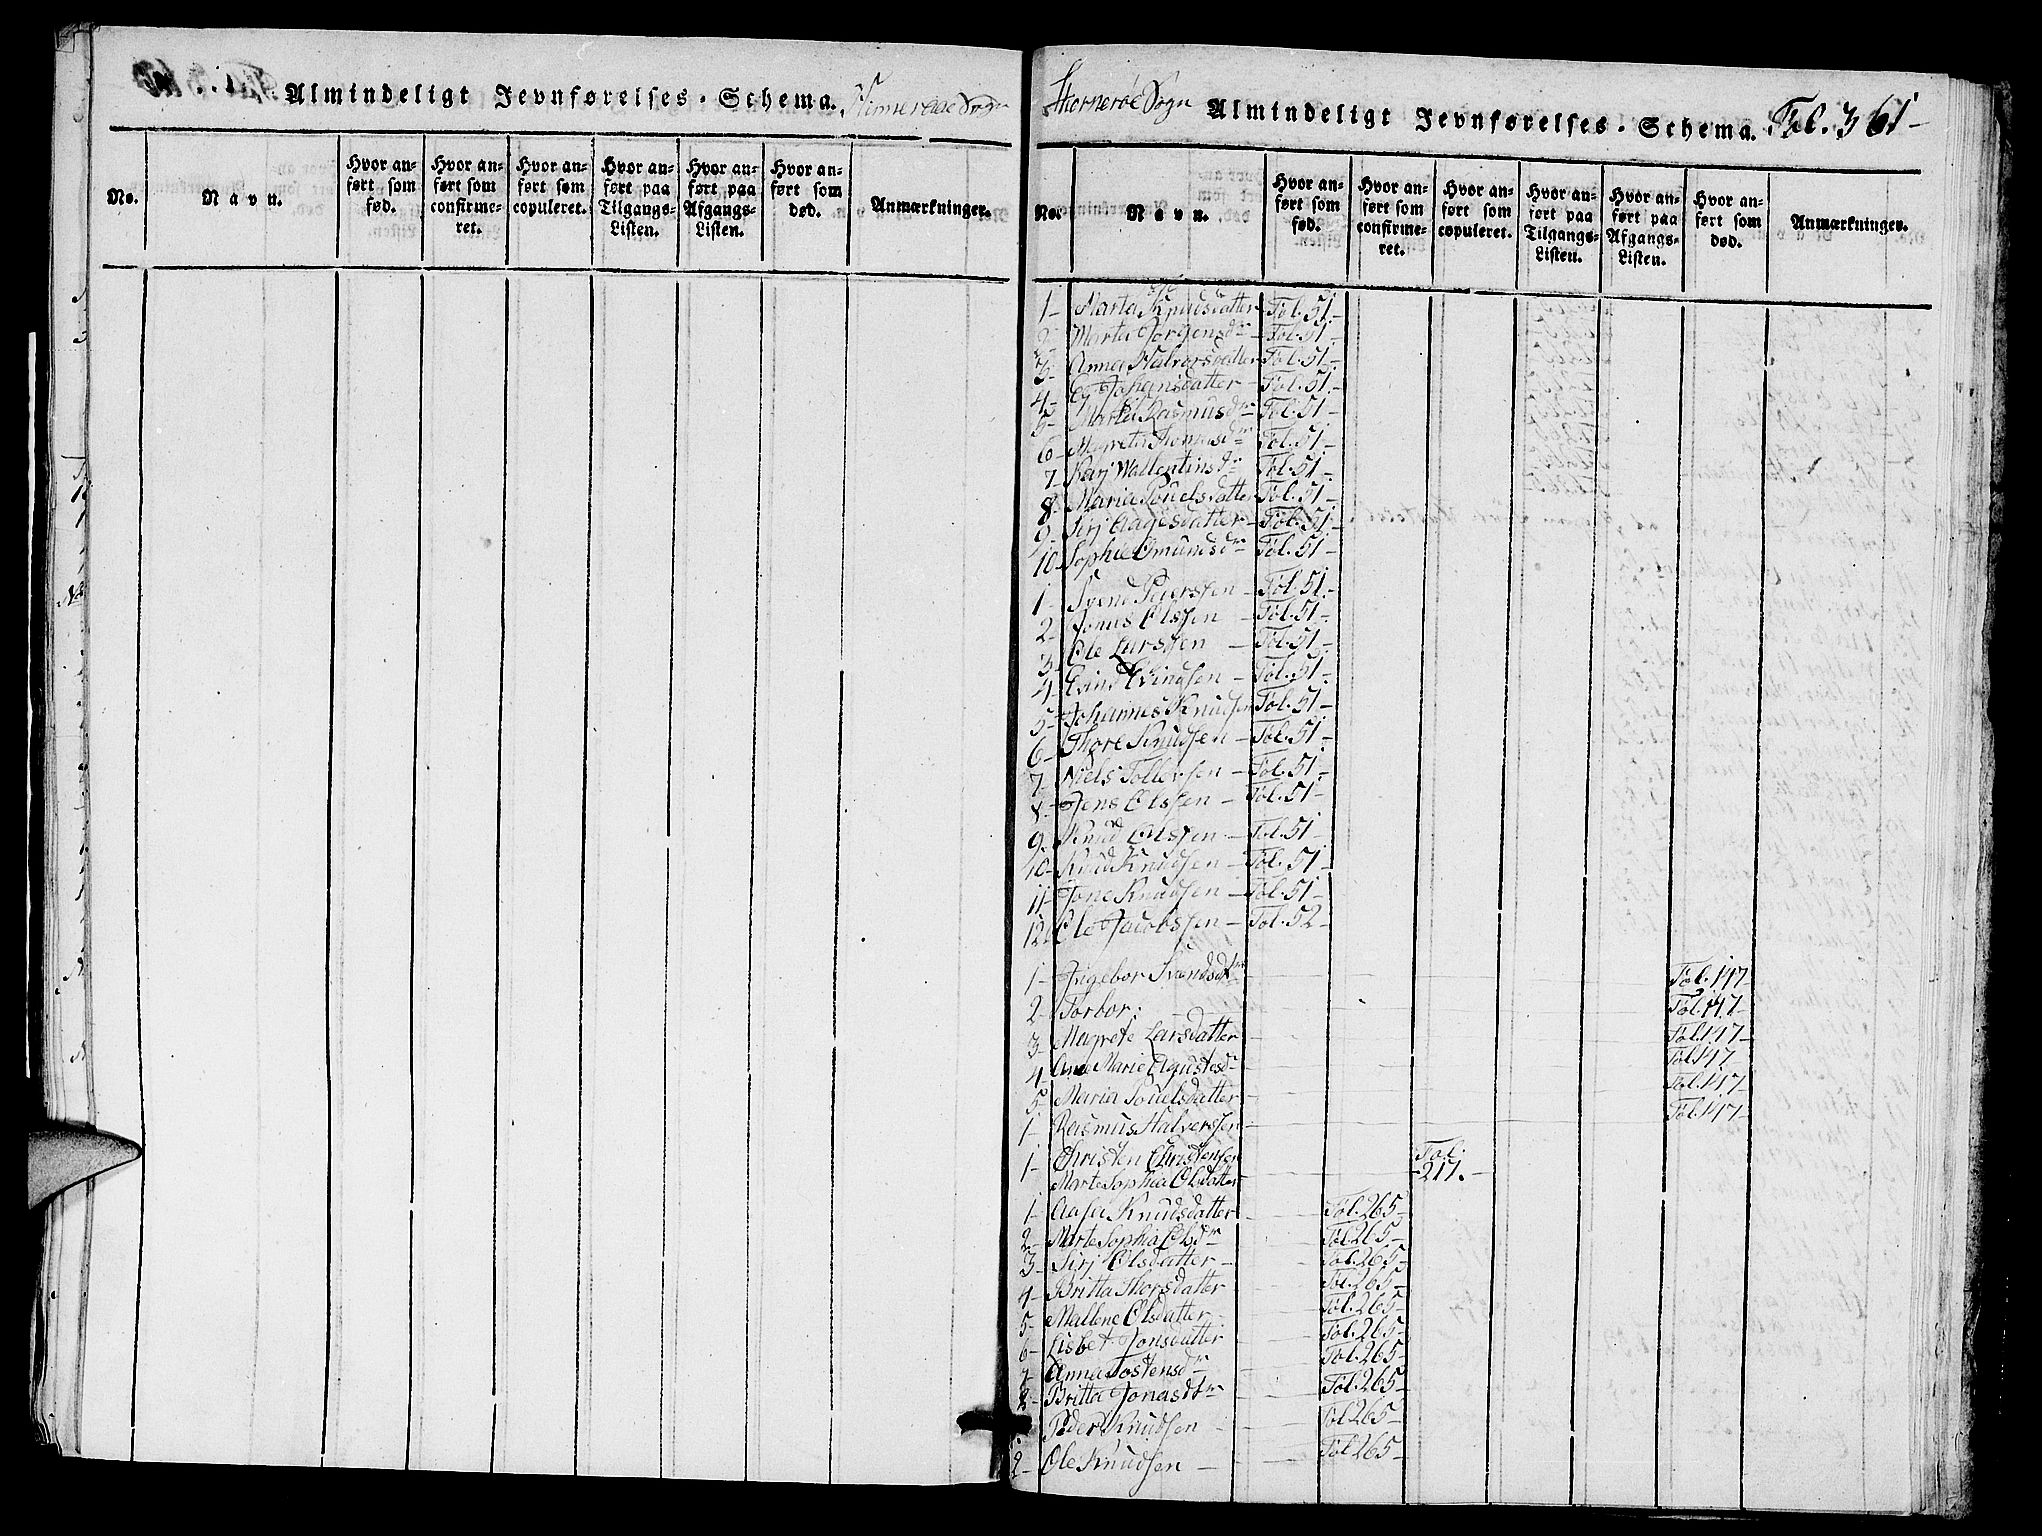 Almindeligt Jevnførelses-Schema.
No.
Navn.
Hvor an-
ført som
fød.
Hvor an-
ført som
confirme-
ret.
Hvor an-
ført som
copuleret.
Hvor an-
ført paa
Tilgangs-
Listen.
Hvor an-
ført paa
Afgangs-
Listen.
Hvor an-
ført som
død.
Anmærkninger.
Sogn Almindeligt Jevnførelses-Schema. Fol. 361-
No.
Navn.
Hvor an-
ført som
fød.
Hvor an-
ført som
confirme-
ret.
Hvor an-
ført som
copuleret.
Hvor an-
ført paa
Tilgangs-
Listen.
Hvor an-
ført paa
Afgangs-
Listen.
Hvor an-
ført som
død.
Anmærkninger.
1- Marta Knudsdatter Fol. 51-
2- Marta Jørgensdr Fol. 51-
3- Anna Halvorsdatter Fol. 51-
4- Johansdatter Fol. 51-
5- Marta Rasmusdr Fol. 51-
6- Magreta Thomasdr Fol. 51-
7- Karj Wallentinsdr Fol. 51-
8- Maria Pouelsdatter Fol. 51-
9- Sirj Aagesdatter Fol. 51-
10 Sophie Omundsdr Fol. 51-
1- Svend Pedersen Fol. 51-
2- Jonas Olssen Fol. 51-
3- Ole Larssen Fol. 51-
4- Evind Evindsen Fol. 51-
5- Johannes Knudsen Fol. 51-
6- Thore Knudsen Fol. 51-
7- Niels Tollefsen Fol. 51-
8- Jens Olssen Fol. 51-
9- Knud Olssen Fol. 51-
10- Knud Knudsen Fol. 51-
11- Jone Knudsen Fol. 51-
12 Ole Jacobssen Fol. 52-
1- Ingebor Svendsdtr Fol. 147
2- Torbor: Fol. 147-
3- Magrete Larsdatter Fol. 147-
4- Ane Marie Fol. 147
5- Maria Pouelsdatter Fol. 147-
1- Rasmus Halversen Fol. 147-
1- Christen Christensen Fol.
Marte Sophia Olsdatter 217.
1- Aasa Knudsdatter Fol. 265-
2- Marte Sophia Olsdr Fol. 265-
3- Sirj Olsdatter Fol. 265-
4- Britta Thorsdatter Fol. 265-
5- Mallene Olsdatter Fol. 265-
6- Lisbet Jonsdatter Fol. 265-
7- Anna Tostensdr Fol. 265-
8- Britta Jonasdtr Fol. 265-
Peder Knudsen Fol 265-
2- Ole Knudsen Fol 265-